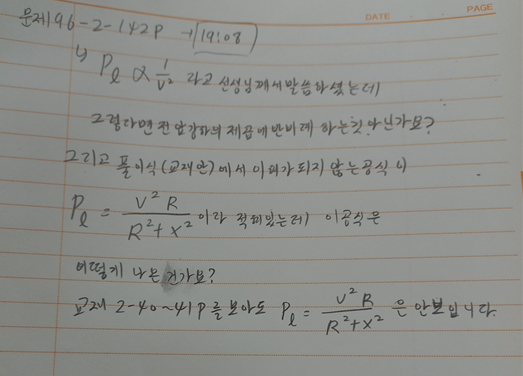 DATE
PAGE
문제196-2-142P →(19:08)
↳ Pℓ ∝ 1/V² 라고 선생님께서 말씀하셨는데
그렇다면 전압강하의 제곱에 반비례 하는것 아닌가요?
그리고 풀이식(교재안)에서 이해가 되지 않는 공식이
Pℓ = V²R / R²+X² 이라 적혀있는데 이공식은
어떻게 나온 건가요?
교재 2-40~41P를 보아도 Pℓ = V²R / R²+X² 은 안보입니다.